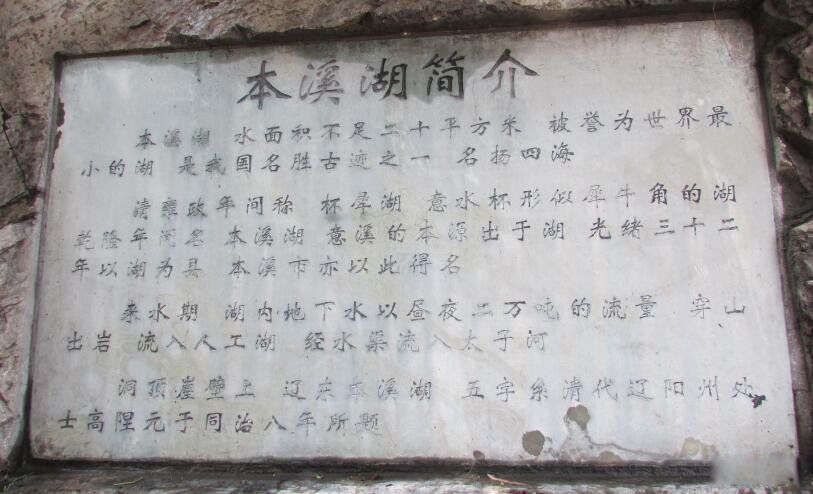 本溪湖简介
本溪湖 水面积不足二十平方米 被誉为世界最
小的湖 是我国名胜古迹之一 名扬四海
清雍政年间称 杯犀湖 意水杯形似犀牛角的湖
乾隆年间名 本溪湖 意溪的本源出于湖 光绪三十二
年以湖为县 本溪市亦以此得名
来水期 湖内地下水以昼夜二万吨的流量 穿山
出岩 流入人工湖 经水渠流入太子河
洞顶崖壁上 辽东本溪湖 五字系清代辽阳州处
士高陧元于同治八年所题